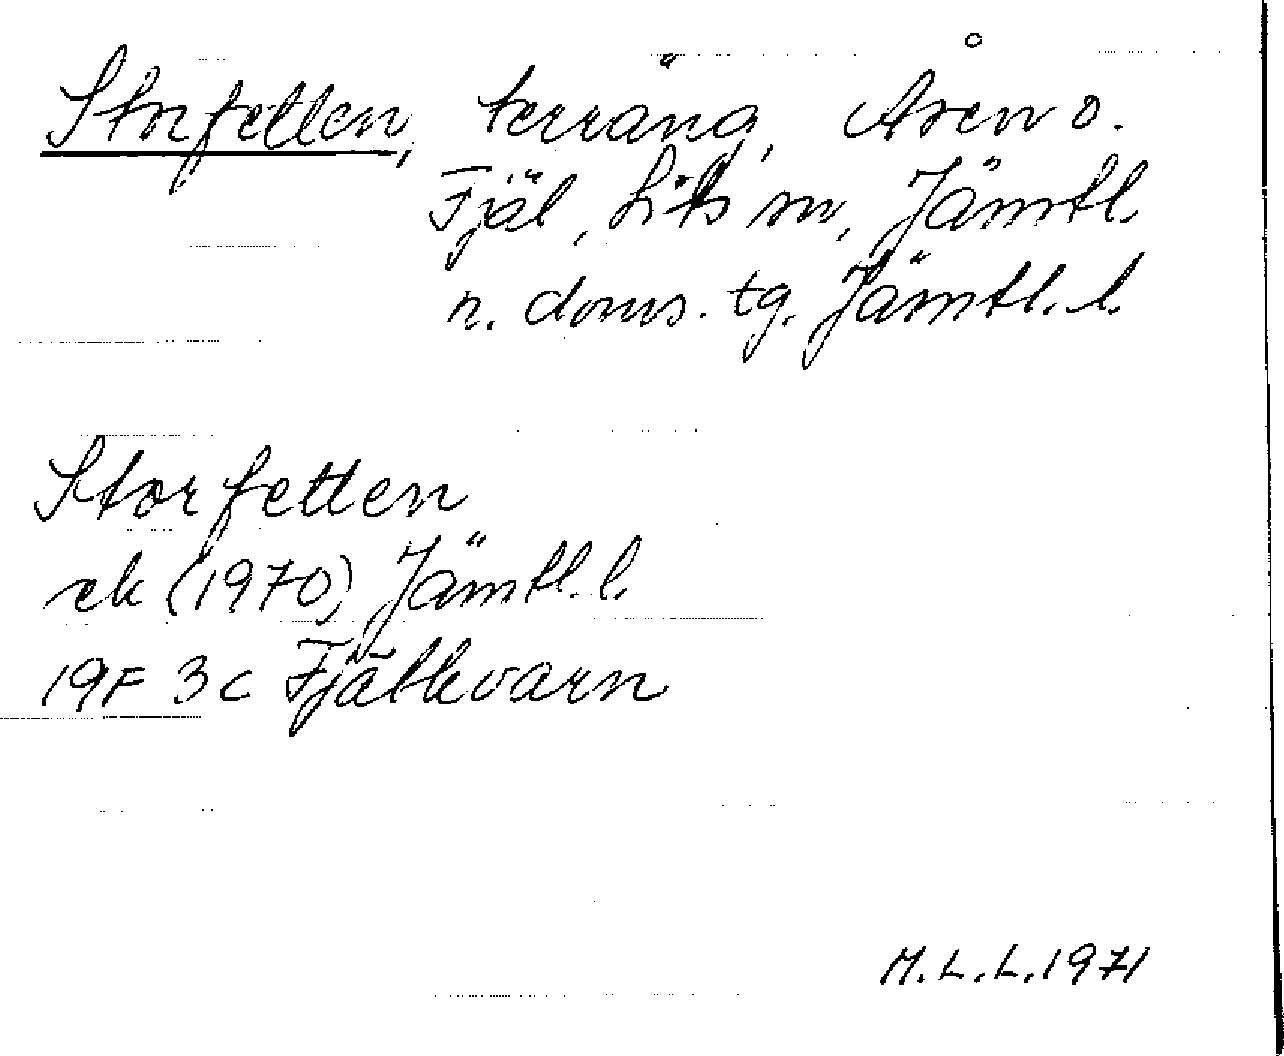 Storfetten, terräng, Åsen o.
Fjäl, Lits sn, Jämtl.
n. doms. tg. Jämtl. l.
Storfetten
ek (1970) Jämtl. l.
19F 3c Fjälkvarn
M.L.L. 1971